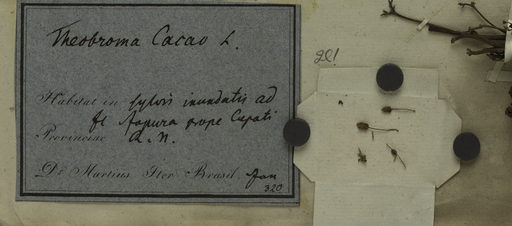 Theobroma Cacao L.
Habitat in sylvis inundatis ad
fl Japura prope Cupati
Provinciae R. N.
Dr Martius Iter Brasil Jan
320